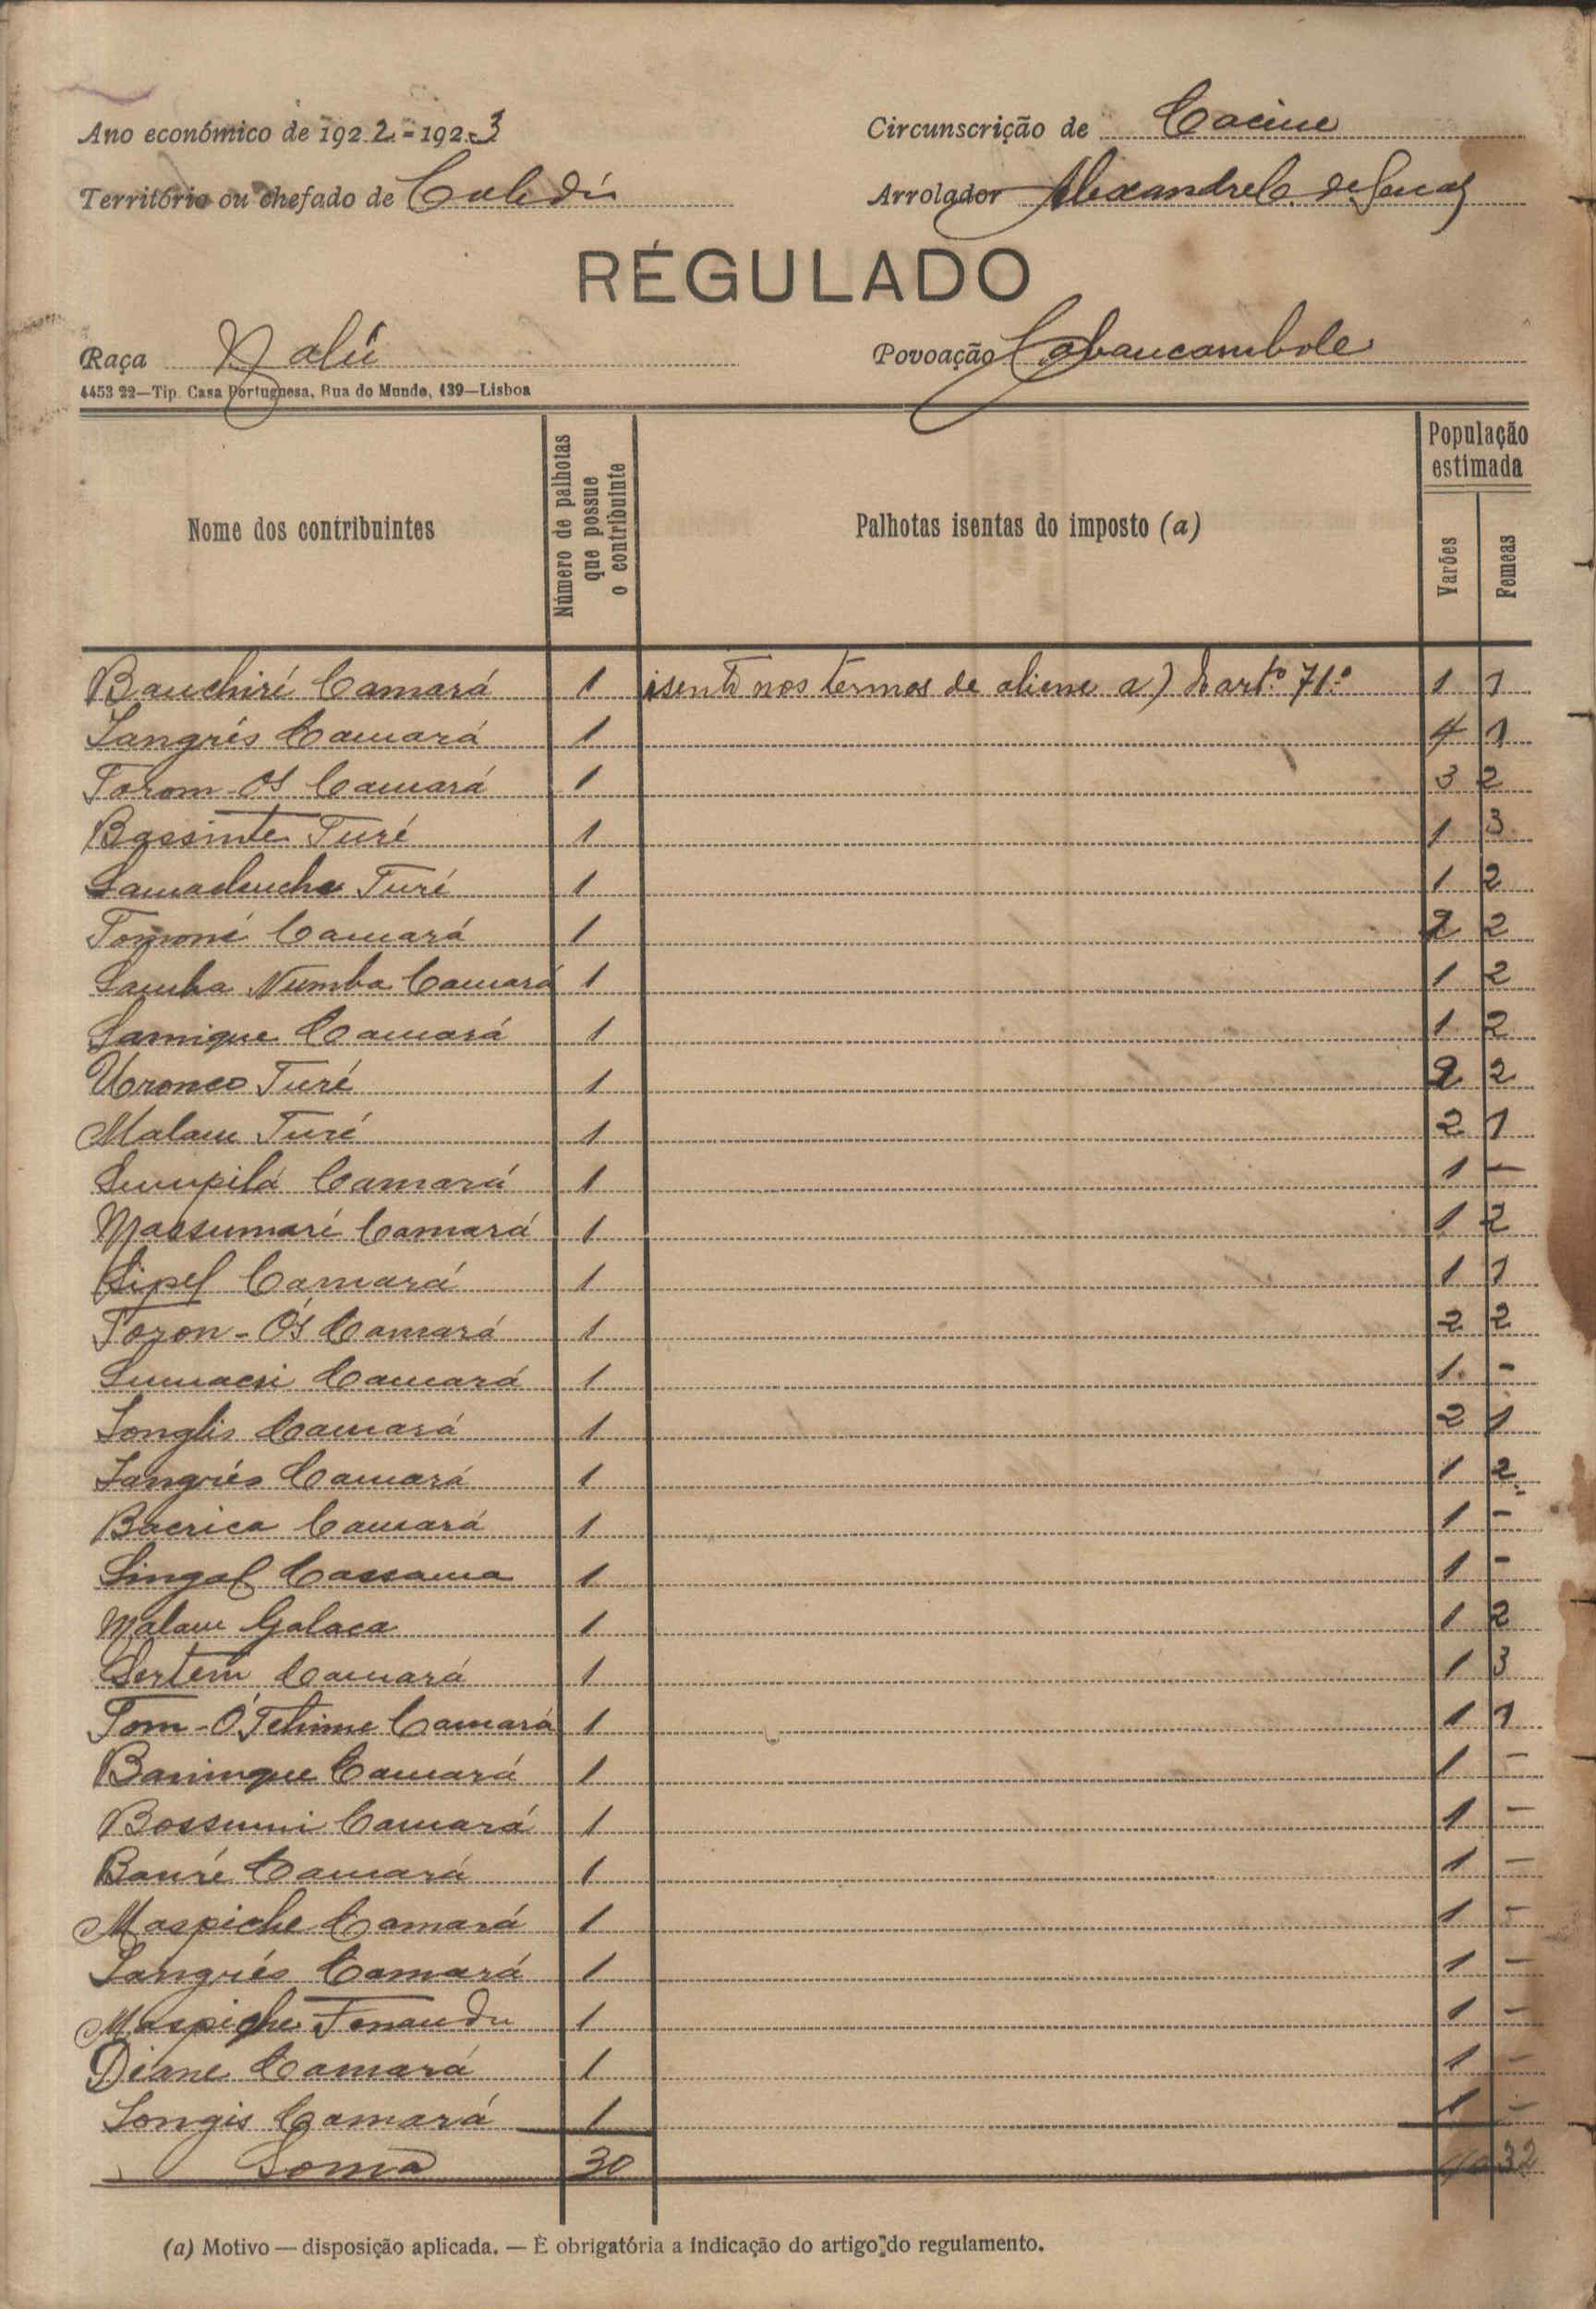 Ano económico de 1922-1923
Circunscrição de Cacine
Território ou chefado de Calidú
Arrolador Alexandre C. de
RÉGULADO
Raça Nalú
Povoação Cabancambole
4453 22—Tip. Casa Portuguesa, Rua do Mundo, 139—Lisboa
Nome dos contribuintes
Número de palhotas que possue o contribuinte
Palhotas isentas do imposto (a)
População estimada
Varões
Femeas
Bauchiré Camará 1 isento nos termos de aliene a) do artº 71º 1 1
Sangrés Camará 1 4 1
Torom-Os Camará 1 3 2
Bassinte Turé 1 1 3
Turé 1 1 2
Tomoné Camará 1 2 2
Samba Numba Camará 1 1 2
Samique Camará 1 1 2
Uronco Turé 1 2 2
Malam Turé 1 2 1
Sumpilá Camará 1 1 —
Massumaré Camará 1 1 2
Sipel Camará 1 1 1
Toron-Ós Camará 1 2 2
Camará 1 1 -
Songlis Camará 1 2 1
Sangrés Camará 1 1 2
Bacrica Camará 1 1 -
Singal Cassama 1 1 -
Malam Galaca 1 1 2
Sertem Camará 1 1 3
Tom-Ó Tchime Camará 1 1 1
Baningue Camará 1 1 —
Bossumi Camará 1 1 —
Bauré Camará 1 1 —
Maspiche Camará 1 1 —
Sangrés Camará 1 1 —
Maspiche 1 1 —
Diane Camará 1 1 —
Songis Camará 1 1 —
Soma 30 40 32
(a) Motivo — disposição aplicada. — È obrigatória a indicação do artigo do regulamento.